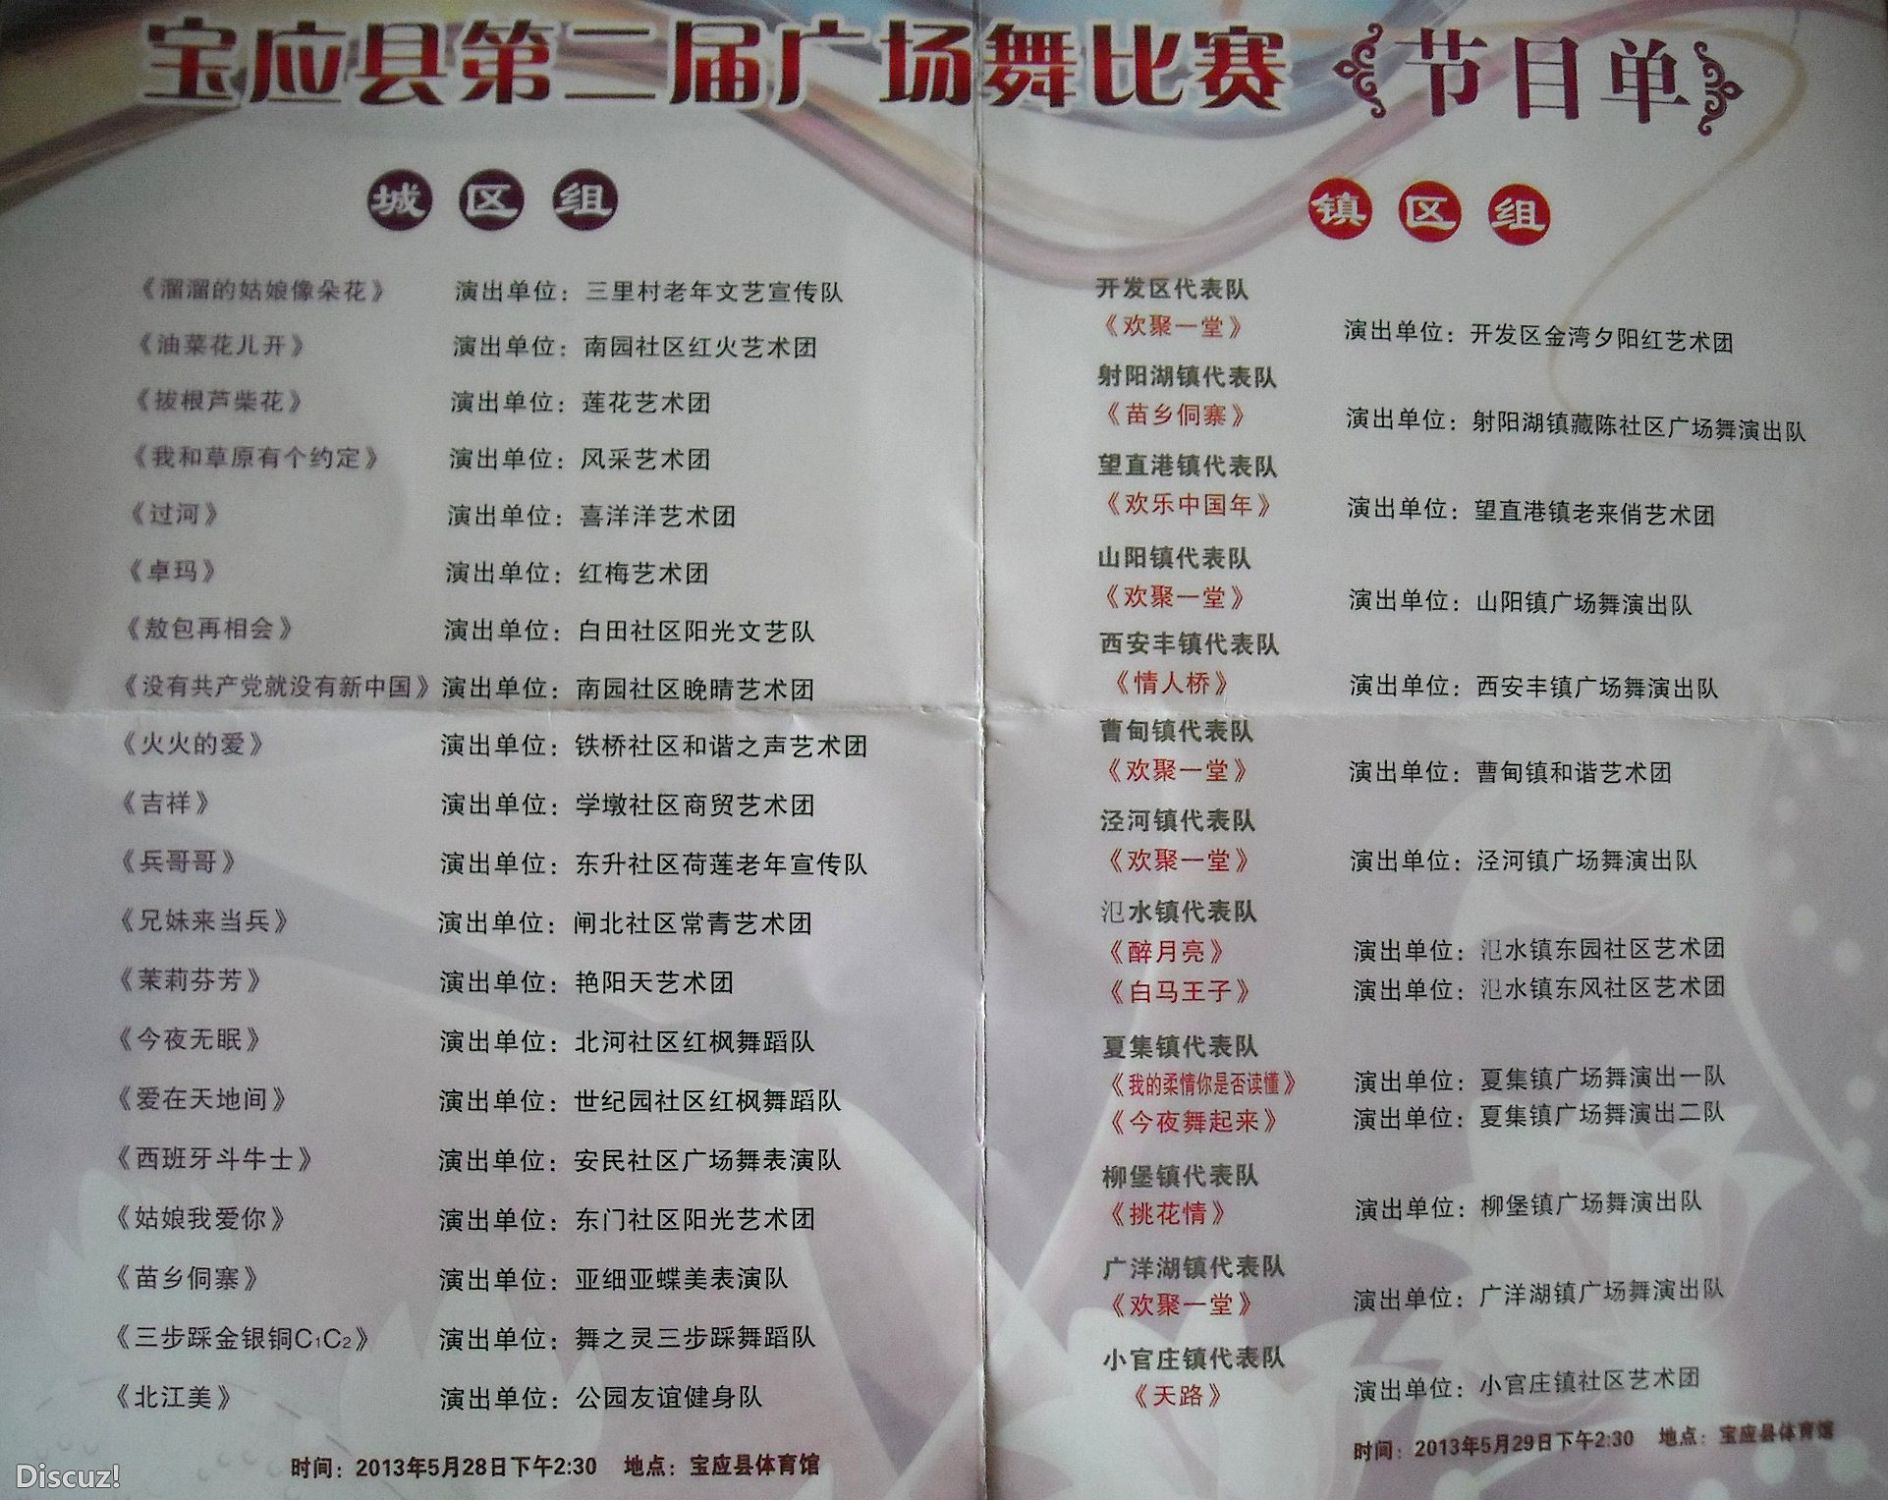 宝应县第二届广场舞比赛 节目单
城区组
《溜溜的姑娘像朵花》 演出单位：三里村老年文艺宣传队
《油菜花儿开》 演出单位：南园社区红火艺术团
《拔根芦柴花》 演出单位：莲花艺术团
《我和草原有个约定》 演出单位：风采艺术团
《过河》 演出单位：喜洋洋艺术团
《卓玛》 演出单位：红梅艺术团
《敖包再相会》 演出单位：白田社区阳光文艺队
《没有共产党就没有新中国》 演出单位：南园社区晚晴艺术团
《火火的爱》 演出单位：铁桥社区和谐之声艺术团
《吉祥》 演出单位：学墩社区商贸艺术团
《兵哥哥》 演出单位：东升社区荷莲老年宣传队
《兄妹来当兵》 演出单位：闸北社区常青艺术团
《茉莉芬芳》 演出单位：艳阳天艺术团
《今夜无眠》 演出单位：北河社区红枫舞蹈队
《爱在天地间》 演出单位：世纪园社区红枫舞蹈队
《西班牙斗牛士》 演出单位：安民社区广场舞表演队
《姑娘我爱你》 演出单位：东门社区阳光艺术团
《苗乡侗寨》 演出单位：亚细亚蝶美表演队
《三步踩金银铜C1C2》 演出单位：舞之灵三步踩舞蹈队
《北江美》 演出单位：公园友谊健身队
时间：2013年5月28日下午2:30 地点：宝应县体育馆
镇区组
开发区代表队
《欢聚一堂》 演出单位：开发区金湾夕阳红艺术团
射阳湖镇代表队
《苗乡侗寨》 演出单位：射阳湖镇藏陈社区广场舞演出队
望直港镇代表队
《欢乐中国年》 演出单位：望直港镇老来俏艺术团
山阳镇代表队
《欢聚一堂》 演出单位：山阳镇广场舞演出队
西安丰镇代表队
《情人桥》 演出单位：西安丰镇广场舞演出队
曹甸镇代表队
《欢聚一堂》 演出单位：曹甸镇和谐艺术团
泾河镇代表队
《欢聚一堂》 演出单位：泾河镇广场舞演出队
氾水镇代表队
《醉月亮》 演出单位：氾水镇东园社区艺术团
《白马王子》 演出单位：氾水镇东风社区艺术团
夏集镇代表队
《我的柔情你是否读懂》 演出单位：夏集镇广场舞演出一队
《今夜舞起来》 演出单位：夏集镇广场舞演出二队
柳堡镇代表队
《挑花情》 演出单位：柳堡镇广场舞演出队
广洋湖镇代表队
《欢聚一堂》 演出单位：广洋湖镇广场舞演出队
小官庄镇代表队
《天路》 演出单位：小官庄镇社区艺术团
时间：2013年5月29日下午2:30 地点：宝应县体育馆
Discuz!